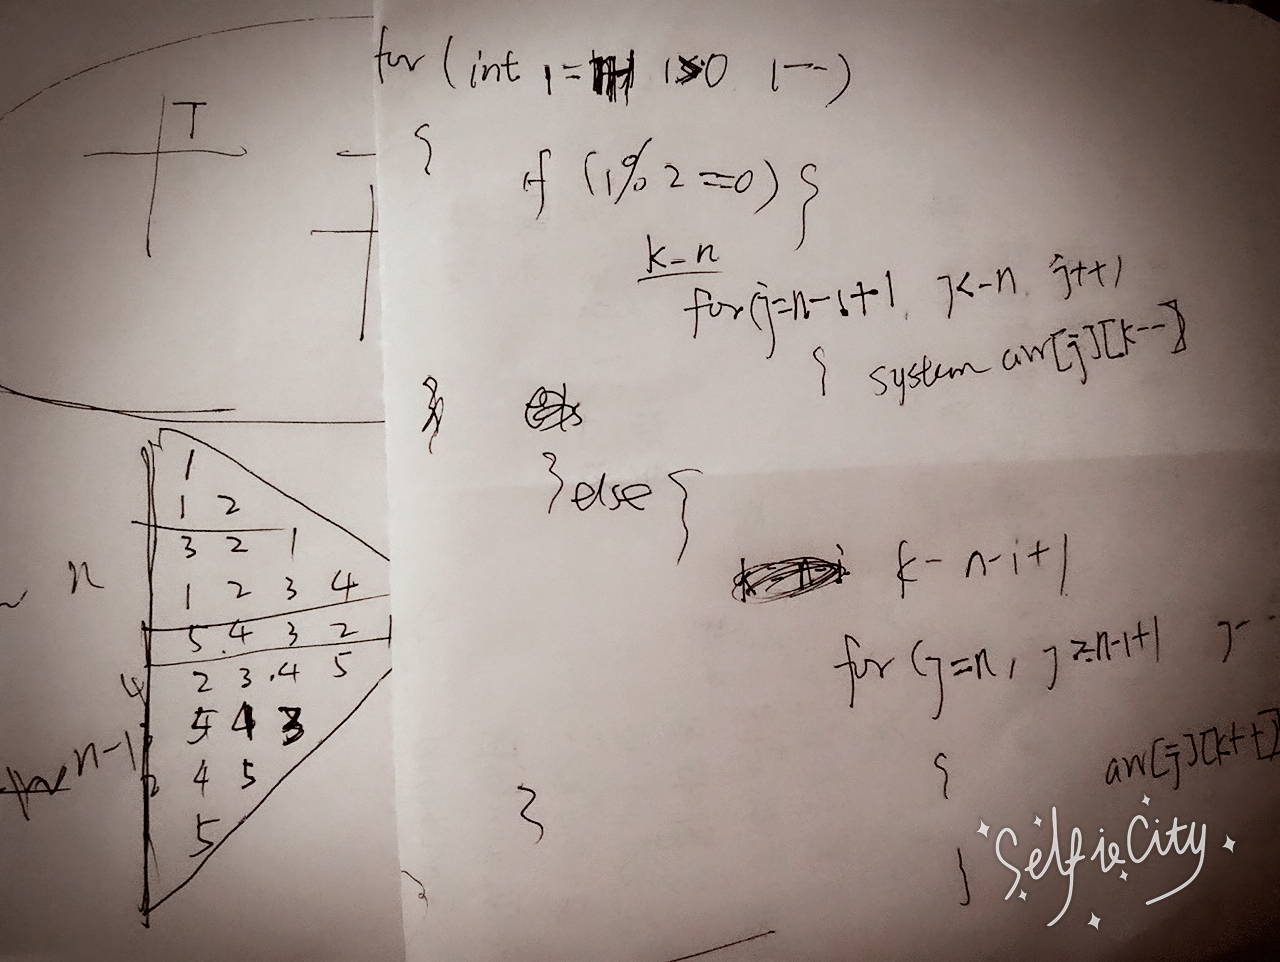 T
for (int i = i>0 i--)
{
if (i%2==0) {
k=n
for(j=n-i+1, j<=n, j++)
{ system arr[j][k--]
}
} else {
k= n-i+1
for (j=n, j>=n-i+1 j--
{ arr[j][k++]
}
}
n
1
1 2
3 2 1
1 2 3 4
5 4 3 2
4 2 3 4 5
n-1 5 4 3
2 4 5
5
Selfie City